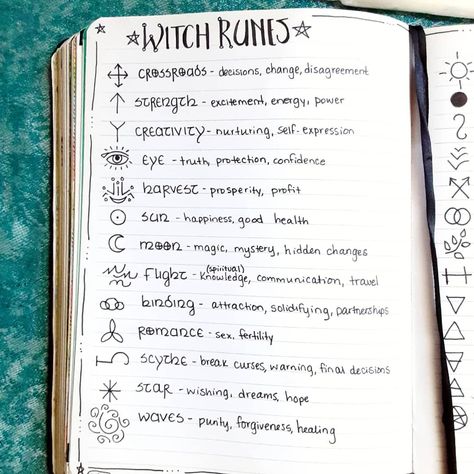 WITCH RUNES
CROSSROADS - decisions, change, disagreement
STRENGTH - excitement, energy, power
CREATIVITY - nurturing, self-expression
EYE - truth, protection, confidence
HARVEST - prosperity, profit
SUN - happiness, good health
MOON - magic, mystery, hidden changes
(spiritual)
FLIGHT - knowledge, communication, travel
BINDING - attraction, solidifying, partnerships
ROMANCE - sex, fertility
SCYTHE - break curses, warning, final decisions
STAR - wishing, dreams, hope
WAVES - purity, forgiveness, healing